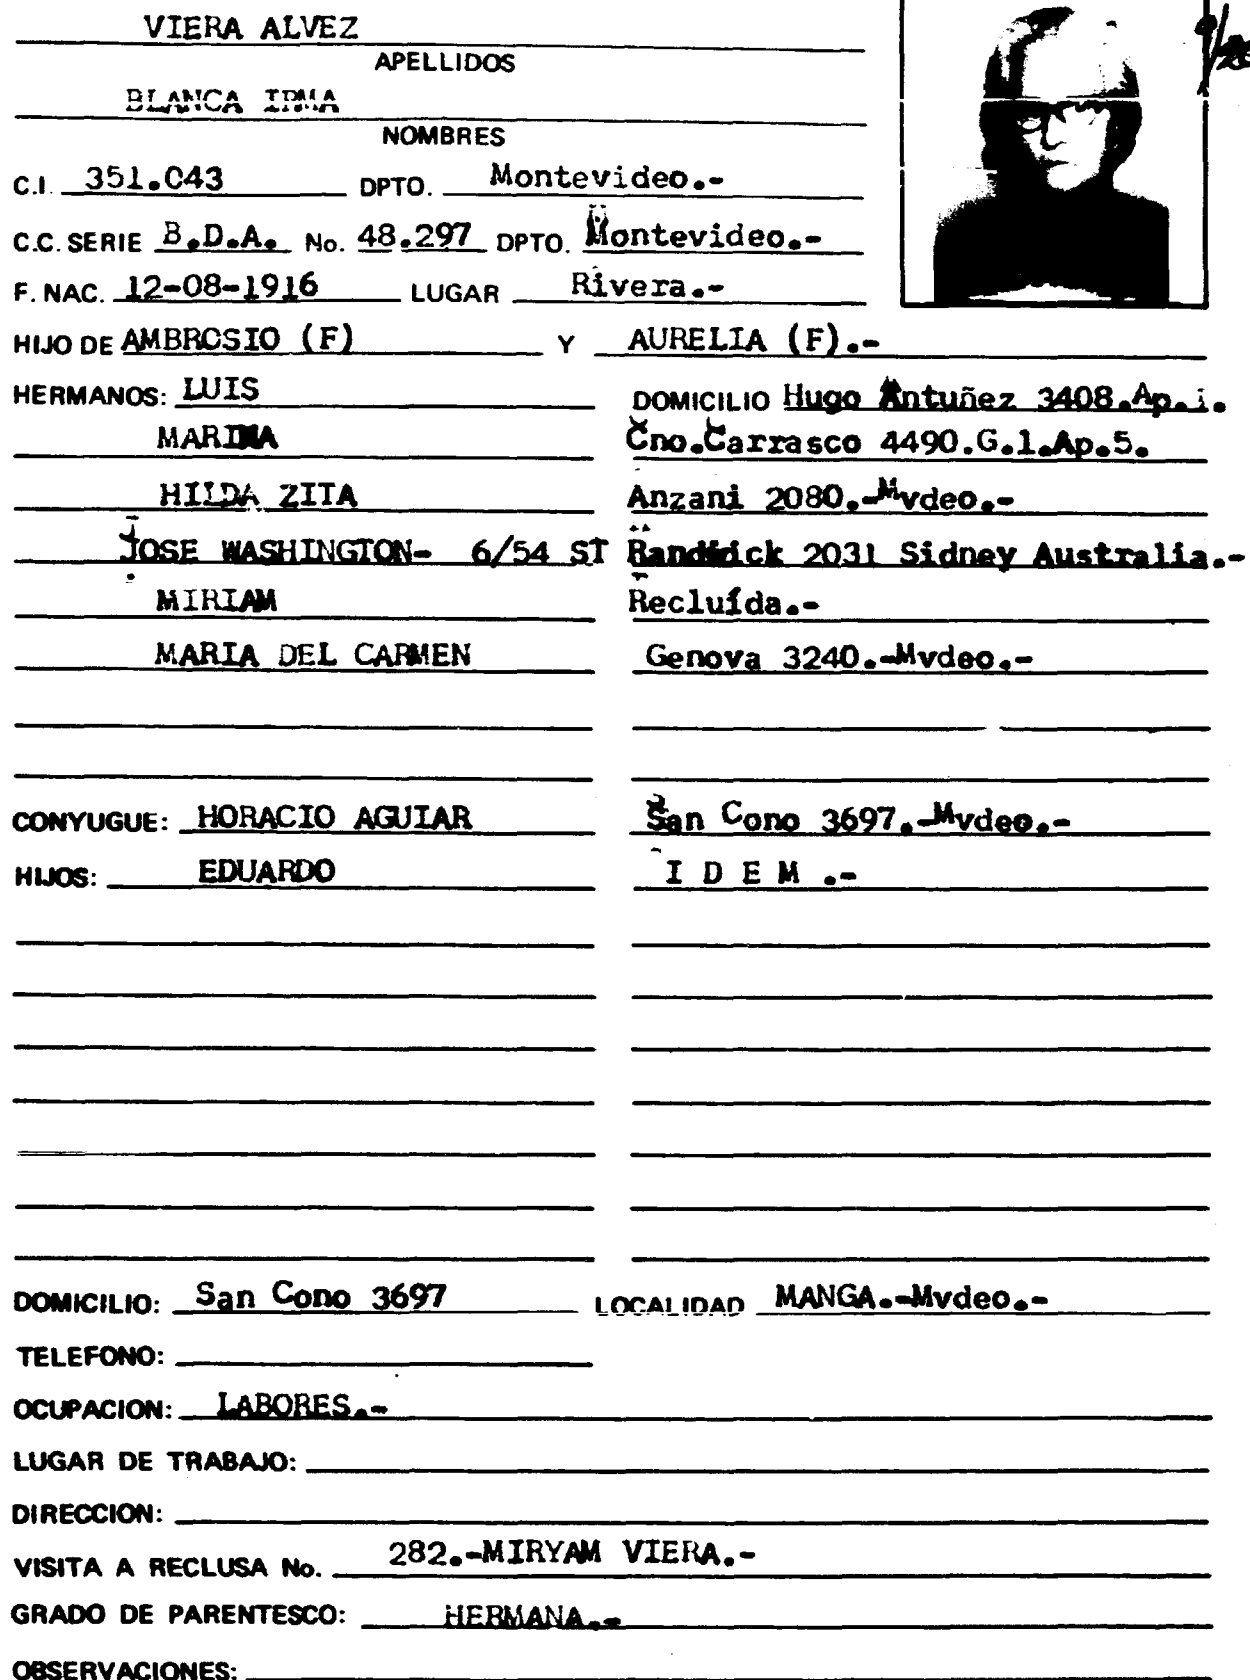 VIERA ALVEZ
APELLIDOS
BLANCA IRMA
NOMBRES
C.I. 351.043 DPTO. Montevideo.-
C.C. SERIE B.D.A. No. 48.297 DPTO. Montevideo.-
F. NAC. 12-08-1916 LUGAR Rivera.-
HIJO DE AMBROSIO (F) Y AURELIA (F).-
HERMANOS: LUIS DOMICILIO Hugo Antuñez 3408.Ap.
MARINA Cno.Carrasco 4490.G.1.Ap.5.
HILDA ZITA Anzani 2080.-Mvdeo.-
JOSE WASHINGTON- 6/54 ST Randwick 2031 Sidney Australia.-
MIRIAM Recluída.-
MARIA DEL CARMEN Genova 3240.-Mvdeo.-
CONYUGUE: HORACIO AGUIAR San Cono 3697.-Mvdeo.-
HIJOS: EDUARDO I D E M .-
DOMICILIO: San Cono 3697 LOCALIDAD MANGA.-Mvdeo.-
TELEFONO:
OCUPACION: LABORES.-
LUGAR DE TRABAJO:
DIRECCION:
VISITA A RECLUSA No. 282.-MIRYAM VIERA.-
GRADO DE PARENTESCO: HERMANA.-
OBSERVACIONES: